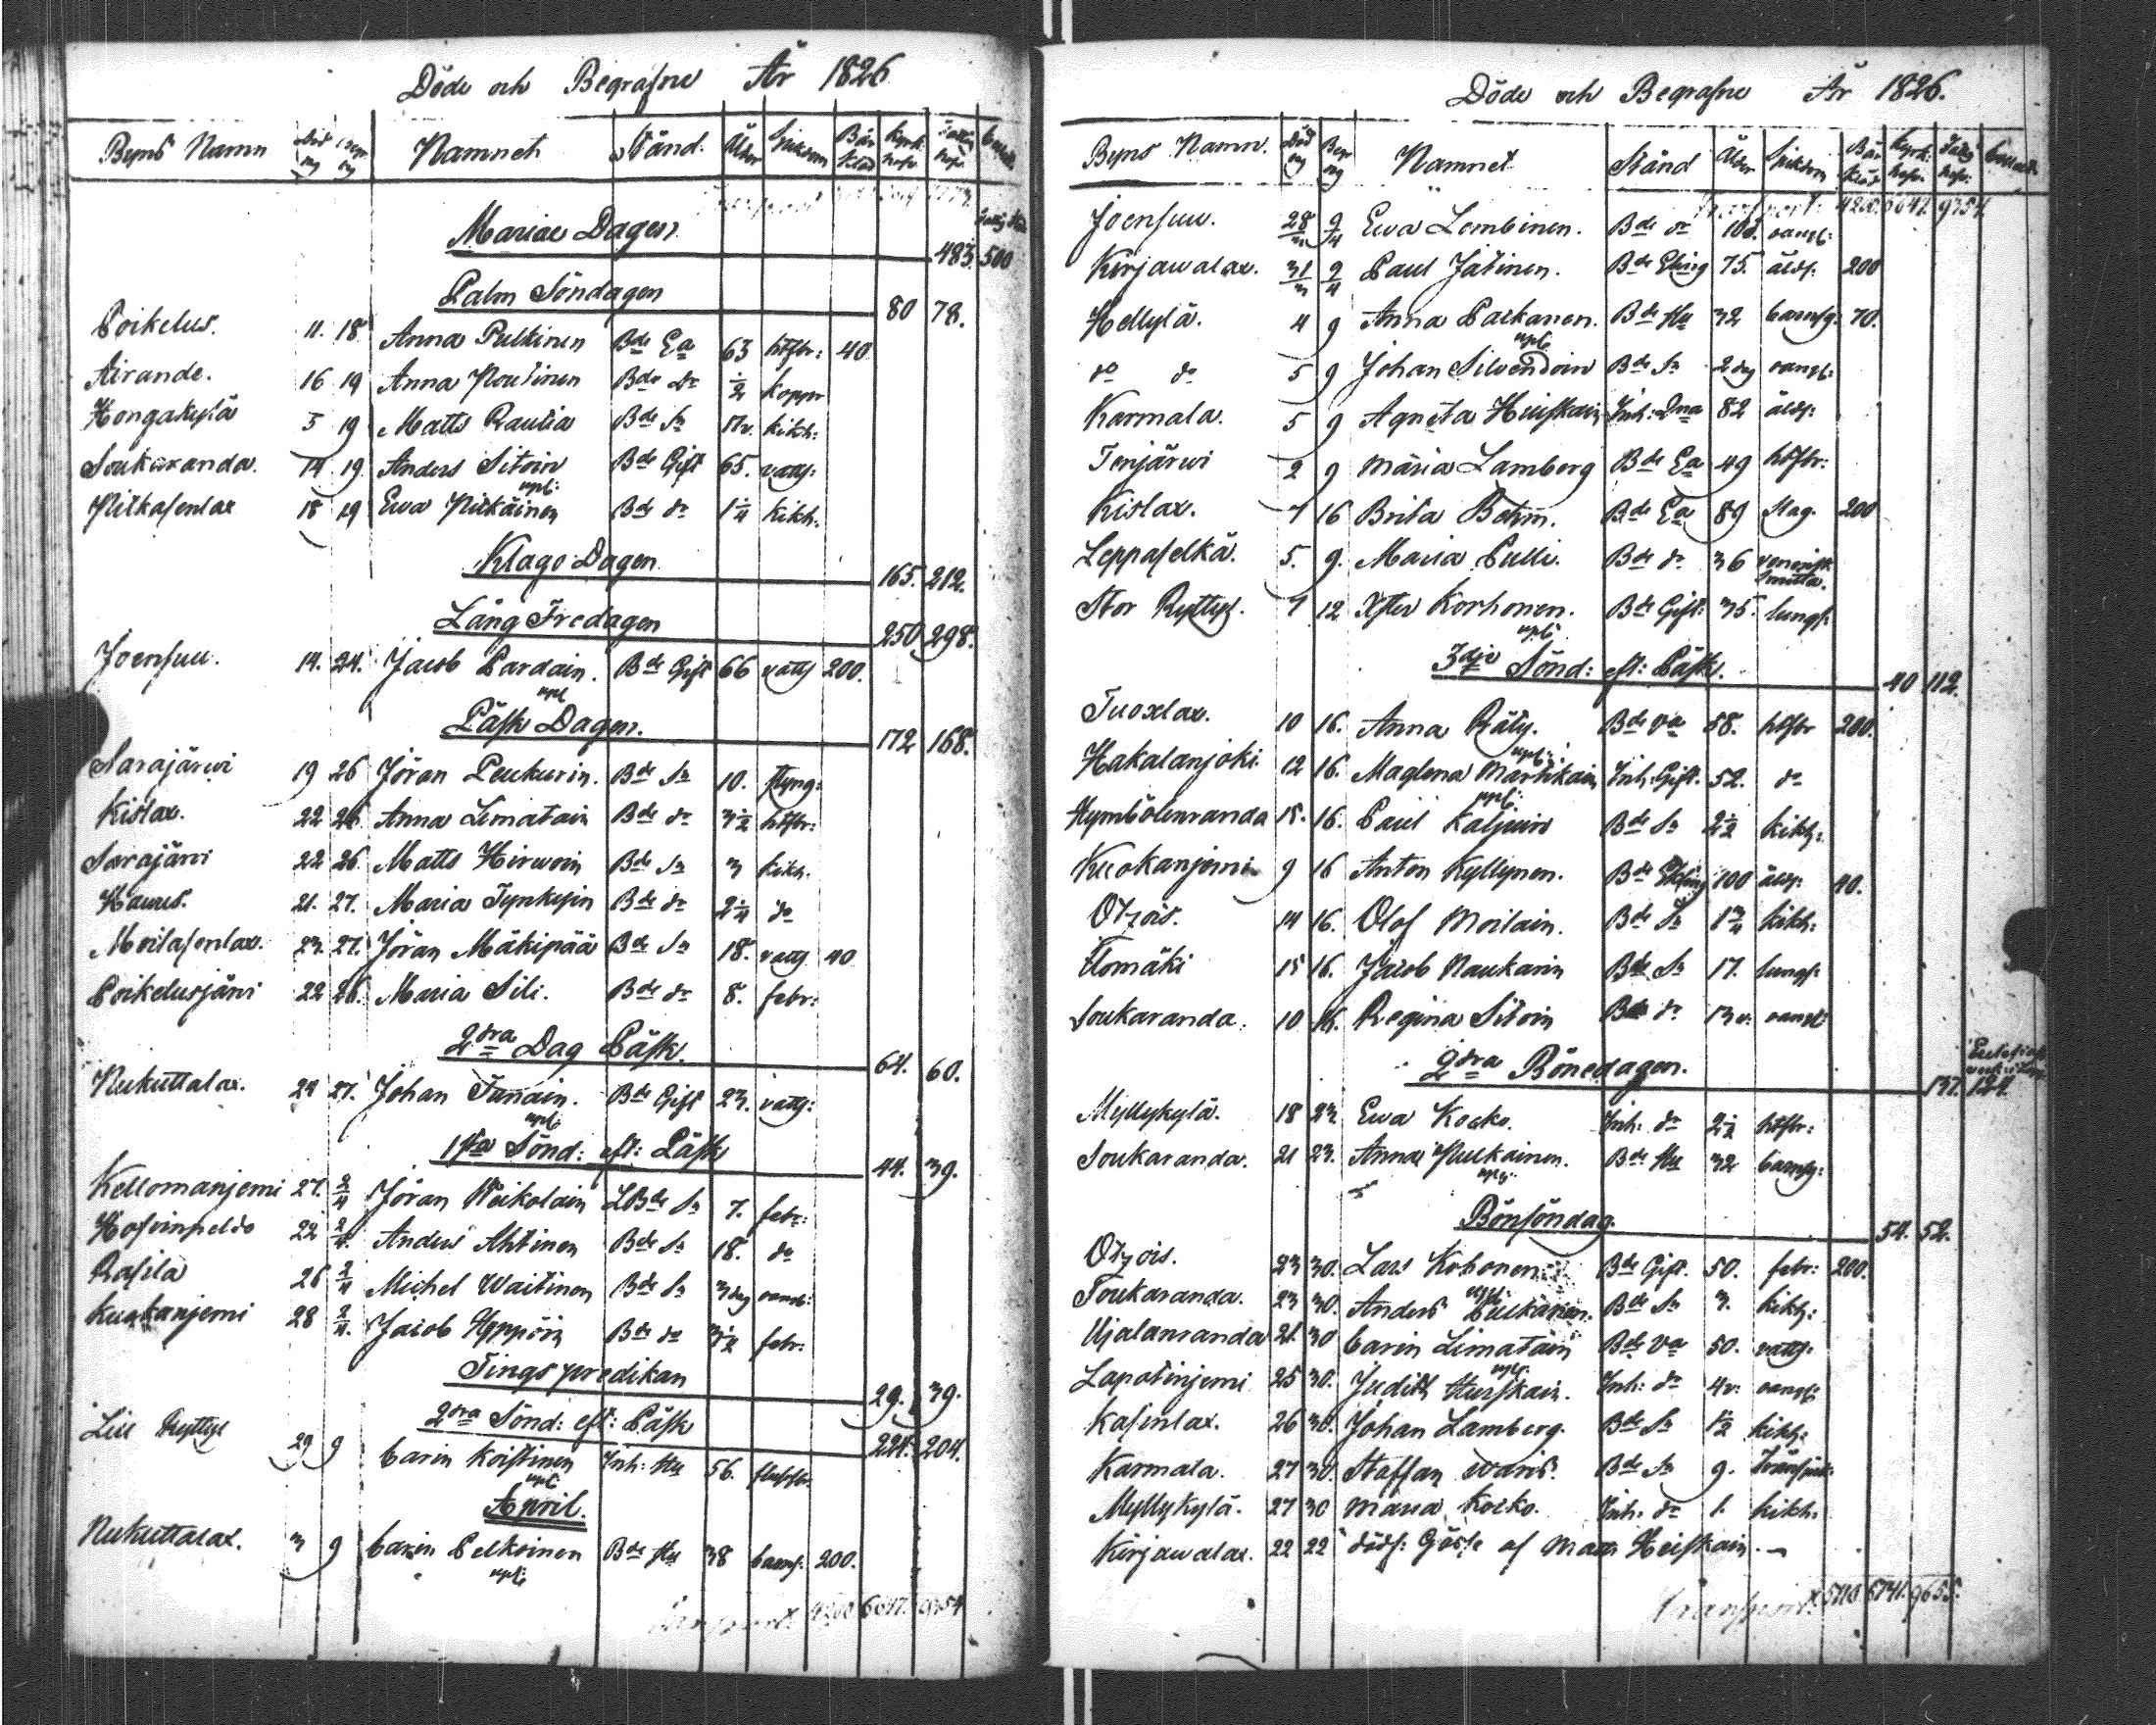 Döde och Begrafne År 1826
Byns Namn Död Begr Namnet Stånd. Ålder Sjukdom Bår kläd Kyrk: hafv. Fattig hafv.
Mariae Dagen 483. 500
Palm Söndagen 80 78.
Poikelus. 11. 18 Anna Pulkinen Bde Ea 63 håftr: 40.
Airande. 16 19 Anna Noutinen Bde Dr 1/2 koppor
Hongakylä 5 19 Matts Rautia Bde Sn kikh:
Soukaranda. 14 19. Anders Sitoin Bde Gift 65. vatts:
Niskasenlax 18 19 Ewa Niskainen Bde dr 1 1/4 kikh.
Klago Dagen 165. 212.
Lång Fredagen 250 298.
Joensuu. 14. 24. Jacob Pardain. Bde Gift 66 vatts 200.
Påsk Dagen. 172 168.
Sarajärwi 19 26 Jöran Peukurin. Bde Sn 10.
Kislax. 22 26 Anna Limatain Bde dr 3 1/2 håftr:
Sarajärvi 22 26. Matts Hirwoin Bde Sn 3 kikh.
Haucus. 21. 27. Maria Tynkyin Bde dr 2 1/4 do
Moilasenlax. 23. 27. Jöran Mäkipää Bde Sn 18. vatts 40
Poikelusjärvi 22 26. Maria Sili. Bde dr 8. febr:
2dra Dag Påsk. 64. 60.
Nukuttalax. 24 27. Johan Tunain. Bde Gift 23. vatts:
1sta Sönd: eft: Påsk 44. 39.
Kellomanjemi 27. 2/4 Jöran Weikolain LBde Sn 7. febr:
Hosoinpeldo 22 2/4. Anders Ahtinen Bde Sn 18. do
Rasila 26 2/4 Michel Waitinen Bde Sn 3 dag oangb:
Kuokanjemi 28 2/4. Jacob Hyppöin Bde dr 3 1/2 febr:
Tings predikan 29. 39.
2dra Sönd: eft: Påsk 224. 204.
Lill Ryttyl 29 9 Carin Koistinen Inh: Hu 56.
April.
Nukuttalax. 3 9 Carin Pelkoinen Bde Hu 38 barns: 200.
Transport. 4200 6647. 9754
Döde och Begrafne År 1826.
Byns Namn. Död Begr Namnet Stånd Ålder Sjukdom Bår Kläd Kyrk: hafv. Fattig hafv:
Transport: 4200. 6647. 9754.
Joensuu. 28/3 9/4 Ewa Lembinen. Bde dr 10d. oangb:
Kirjawalax. 31/3 9/4 Paul Jätinen. Bde Ekling 75. åldr: 200
Hellylä. 4 9 Anna Paskanen. Bde Hu 32 barnsg: 70.
do do 5 9 Johan Silvendoin Bde Sn 2 dag oangb:
Karmala. 5 9 Agneta Huiskain Inh: Ena 82 åldr:
Tenjärwi 2 9 Maria Lamberg Bde Ea 49 håftr:
Kislax. 7 16 Brita Behm. Bde Ea 89 slag. 200
Leppaselkä. 5. 9. Maria Pulli. Bde dr 36 venerisk smitta.
Stor Ryttyl. 7 12 Xster Korhonen. Bde Gift: 35. lungs:
3dje Sönd: eft: Påsk. 40 112.
Tuoxlax. 10 16. Anna Räty. Bde Va 58. håftr 200.
Hakalanjoki 12 16. Maglena Martikain Inh: Gift. 52. do
Hymbölenranda 15. 16. Paul Kaljuin Bde Sn 2 1/2 kikh:
Kuokanjemi 9 16 Anton Kyllynen. Bde Ekling 100 åldr 40.
Otzois. 14 16. Olof Moilain. Bde Sn 1 3/4 kikh:
Elomäki 15 16. Jacob Naukarin Bde Sn 17. lungs:
Soukaranda. 10 16. Regina Sitoin Bde dr 13 v. oangb
2dra Bönedagen. 137. 124.
Myllykylä. 18 23. Ewa Kocko. Inh: dr 2 1/2 håftr:
Soukaranda. 21 23. Anna Nuckainen. Bde Hu 32 barnsg:
Bönsöndag. 54. 52.
Otzois. 23 30. Lars Kohonen Bde Gift. 50. febr: 200.
Toukaranda. 23 30. Anders Pulkanen. Bde Sn 3. kikh:
Ujalanranda 21. 30 Carin Limatain Bde Va 50. vatts:
Lapotinjemi 25 30. Judith Hurskain. Inh: dr 4 v. oangb:
Kasinlax. 26 30. Johan Lamberg. Bde Sn 1 1/2 kikh:
Karmala. 27 30. Staffan Waris. Bde Sn 9.
Myllykylä. 27 30 Maria Kocko. Inh: dr 1. kikh.
Kirjawalax. 22 22 dödf: Gosse af Mats Heiskain. —
Transport. 5110 6741. 9655.